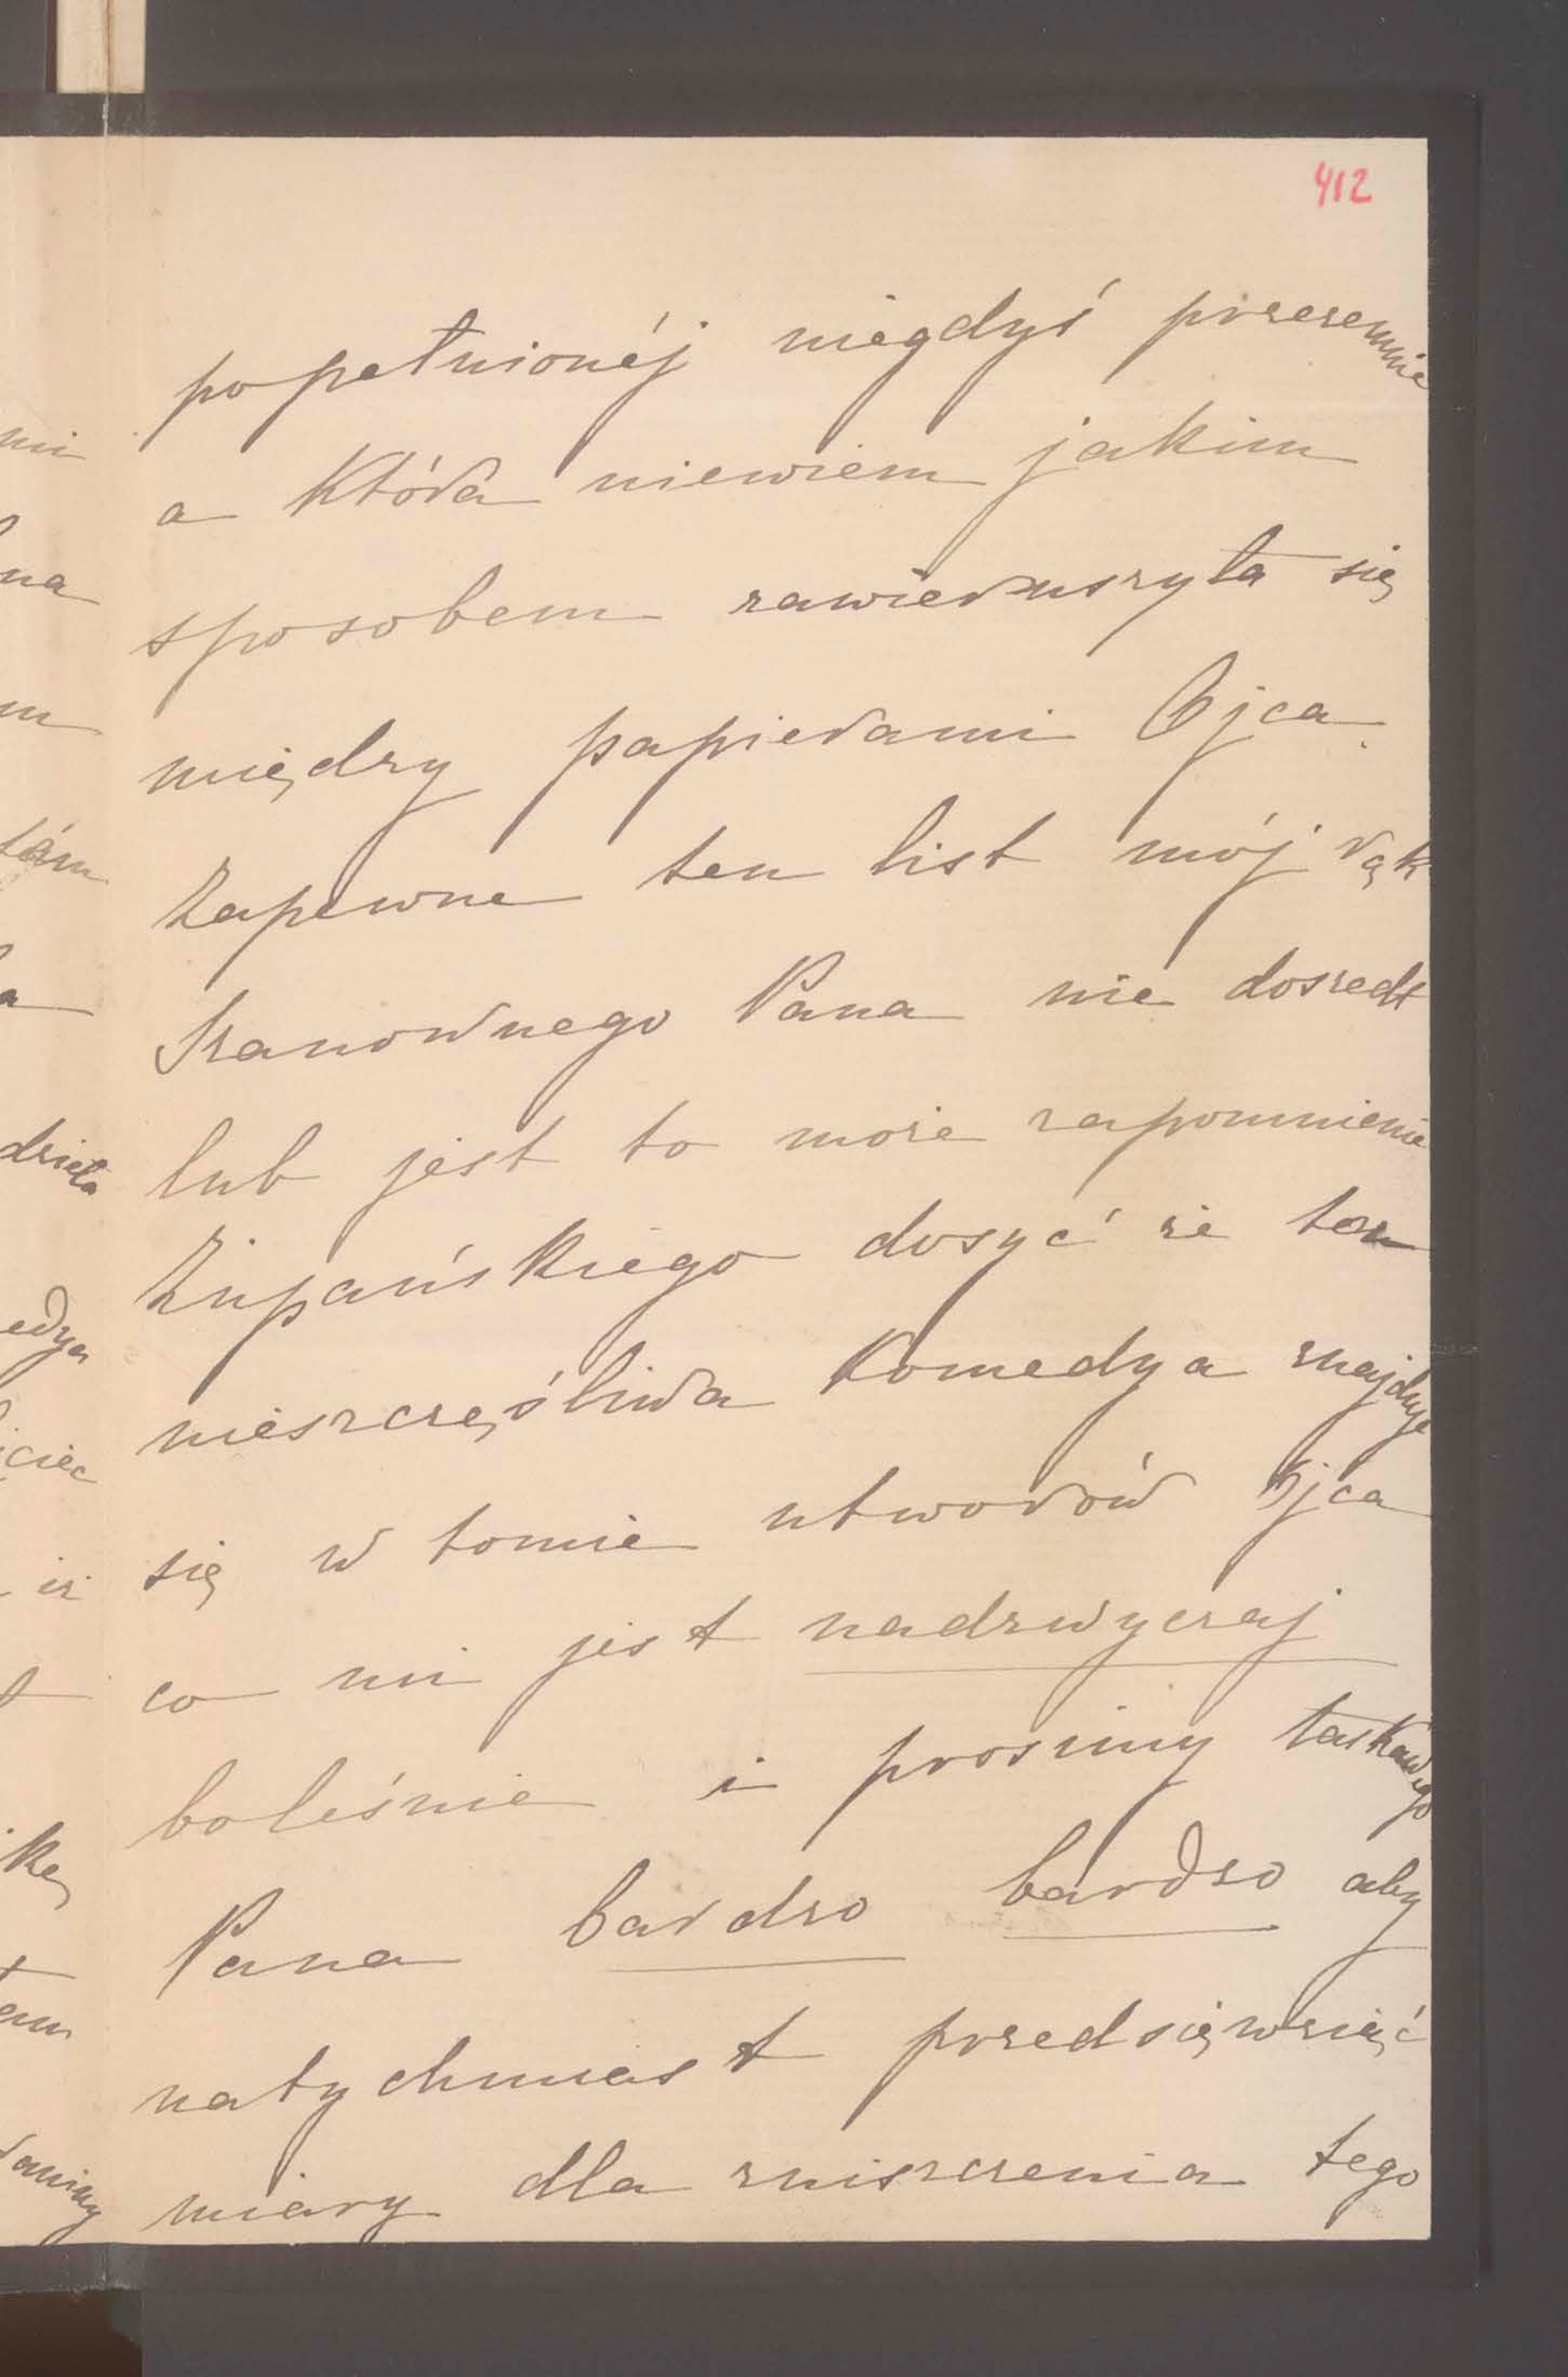 412
popełnionéj niegdyś przezemnie
a która niewiem jakim
sposobem zawieruszyła się
między papierami Ojca.
Zapewne ten list mój rąk
Szanownego Pana nie doszedł
lub jest to może zapomnienie
Żupańskiego dosyć że ton
nieszczęśliwa Komedya znajduje
się w tomie utworów Ojca
co mi jest nadzwyczaj
boleśnie i prosimy łaskawego
Pana bardzo bardzo aby
natychmiast przedsięwziąć
miary dla zniszczenia tego